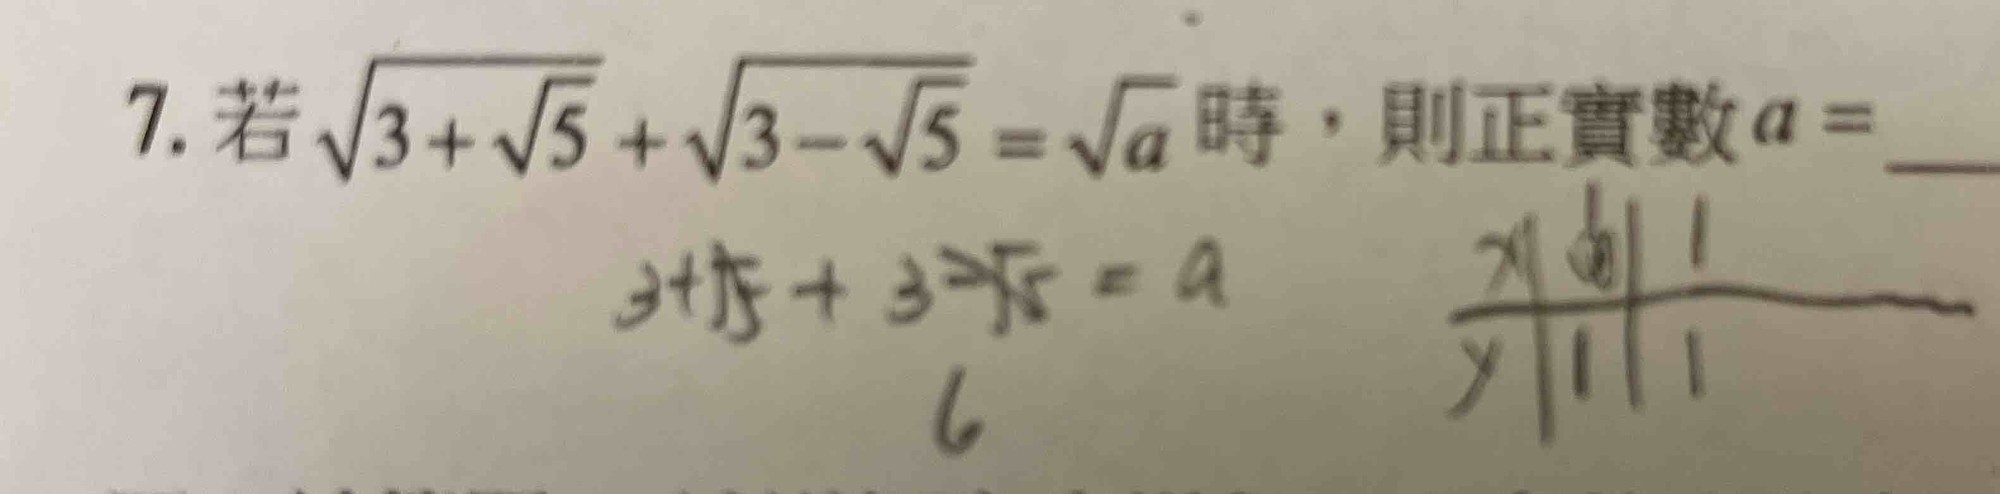 7. 若√(3+√5) + √(3−√5) = √a 時，則正實數a = ___
3+√5 + 3-√5 = a
x | 1 | 1
y | 1 | 1
6